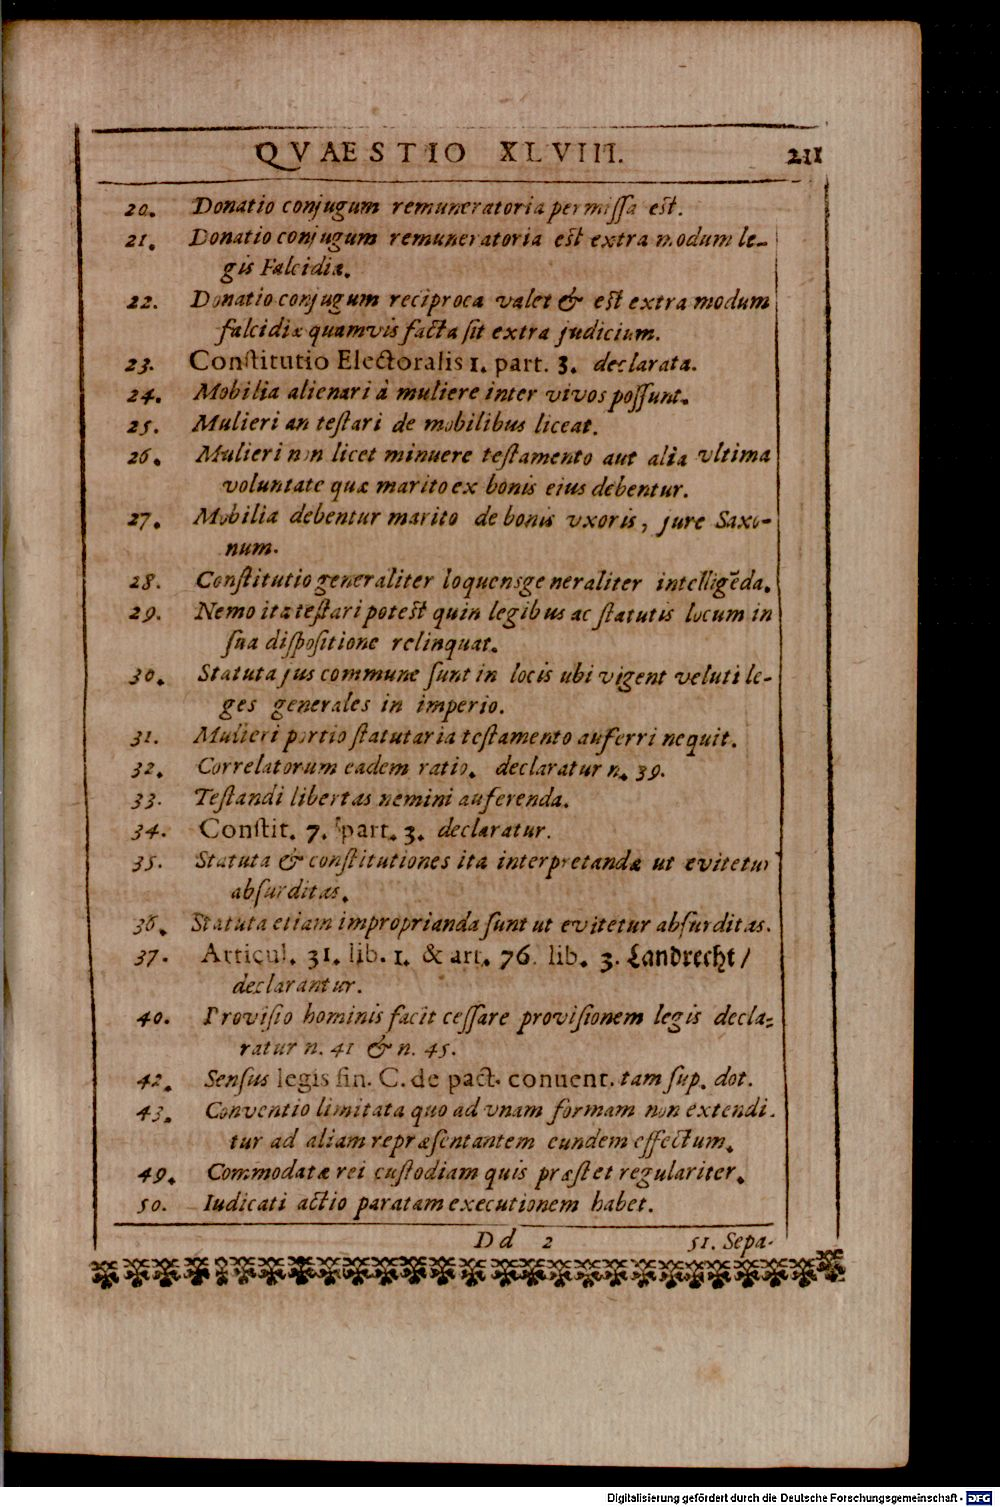 QVAESTIO XLVIII. 211
20. Donatio conjugum remuneratoria permissa est.
21. Donatio conjugum remuneratoria est extra modum le-
gis Falcidiæ.
22. Donatio conjugum reciproca valet & est extra modum
falcidiæ quamvis facta sit extra judicium.
23. Constitutio Electoralis 1. part. 3. declarata.
24. Mobilia alienari à muliere inter vivos possunt.
25. Mulieri an testari de mobilibus liceat.
26. Mulieri non licet minuere testamento aut alia vltima
voluntate quæ marito ex bonis eius debentur.
27. Mobilia debentur marito de bonis vxoris, jure Saxo-
num.
28. Constitutio generaliter loquens generaliter intelligẽda.
29. Nemo ita testari potest quin legibus ac statutis locum in
sua dispositione relinquat.
30. Statuta jus commune sunt in locis ubi vigent veluti le-
ges generales in imperio.
31. Mulieri portio statutaria testamento auferri nequit.
32. Correlatorum eadem ratio. declaratur n. 39.
33. Testandi libertas nemini auferenda.
34. Constit. 7. part. 3. declaratur.
35. Statuta & constitutiones ita interpretandæ ut evitetur
absurditas.
36. Statuta etiam improprianda sunt ut evitetur absurditas.
37. Articul. 31. lib. 1. & art. 76. lib. 3. Landrecht/
declarantur.
40. Provisio hominis facit cessare provisionem legis decla-
ratur n. 41 & n. 45.
42. Sensus legis fin. C. de pact. conuent. tam sup. dot.
43. Conventio limitata quo ad vnam formam non extendi.
tur ad aliam repræsentantem eundem effectum.
49. Commodatæ rei custodiam quis præstet regulariter.
50. Iudicati actio paratam executionem habet.
Dd 2 51. Sepa-
Digitalisierung gefördert durch die Deutsche Forschungsgemeinschaft - DFG